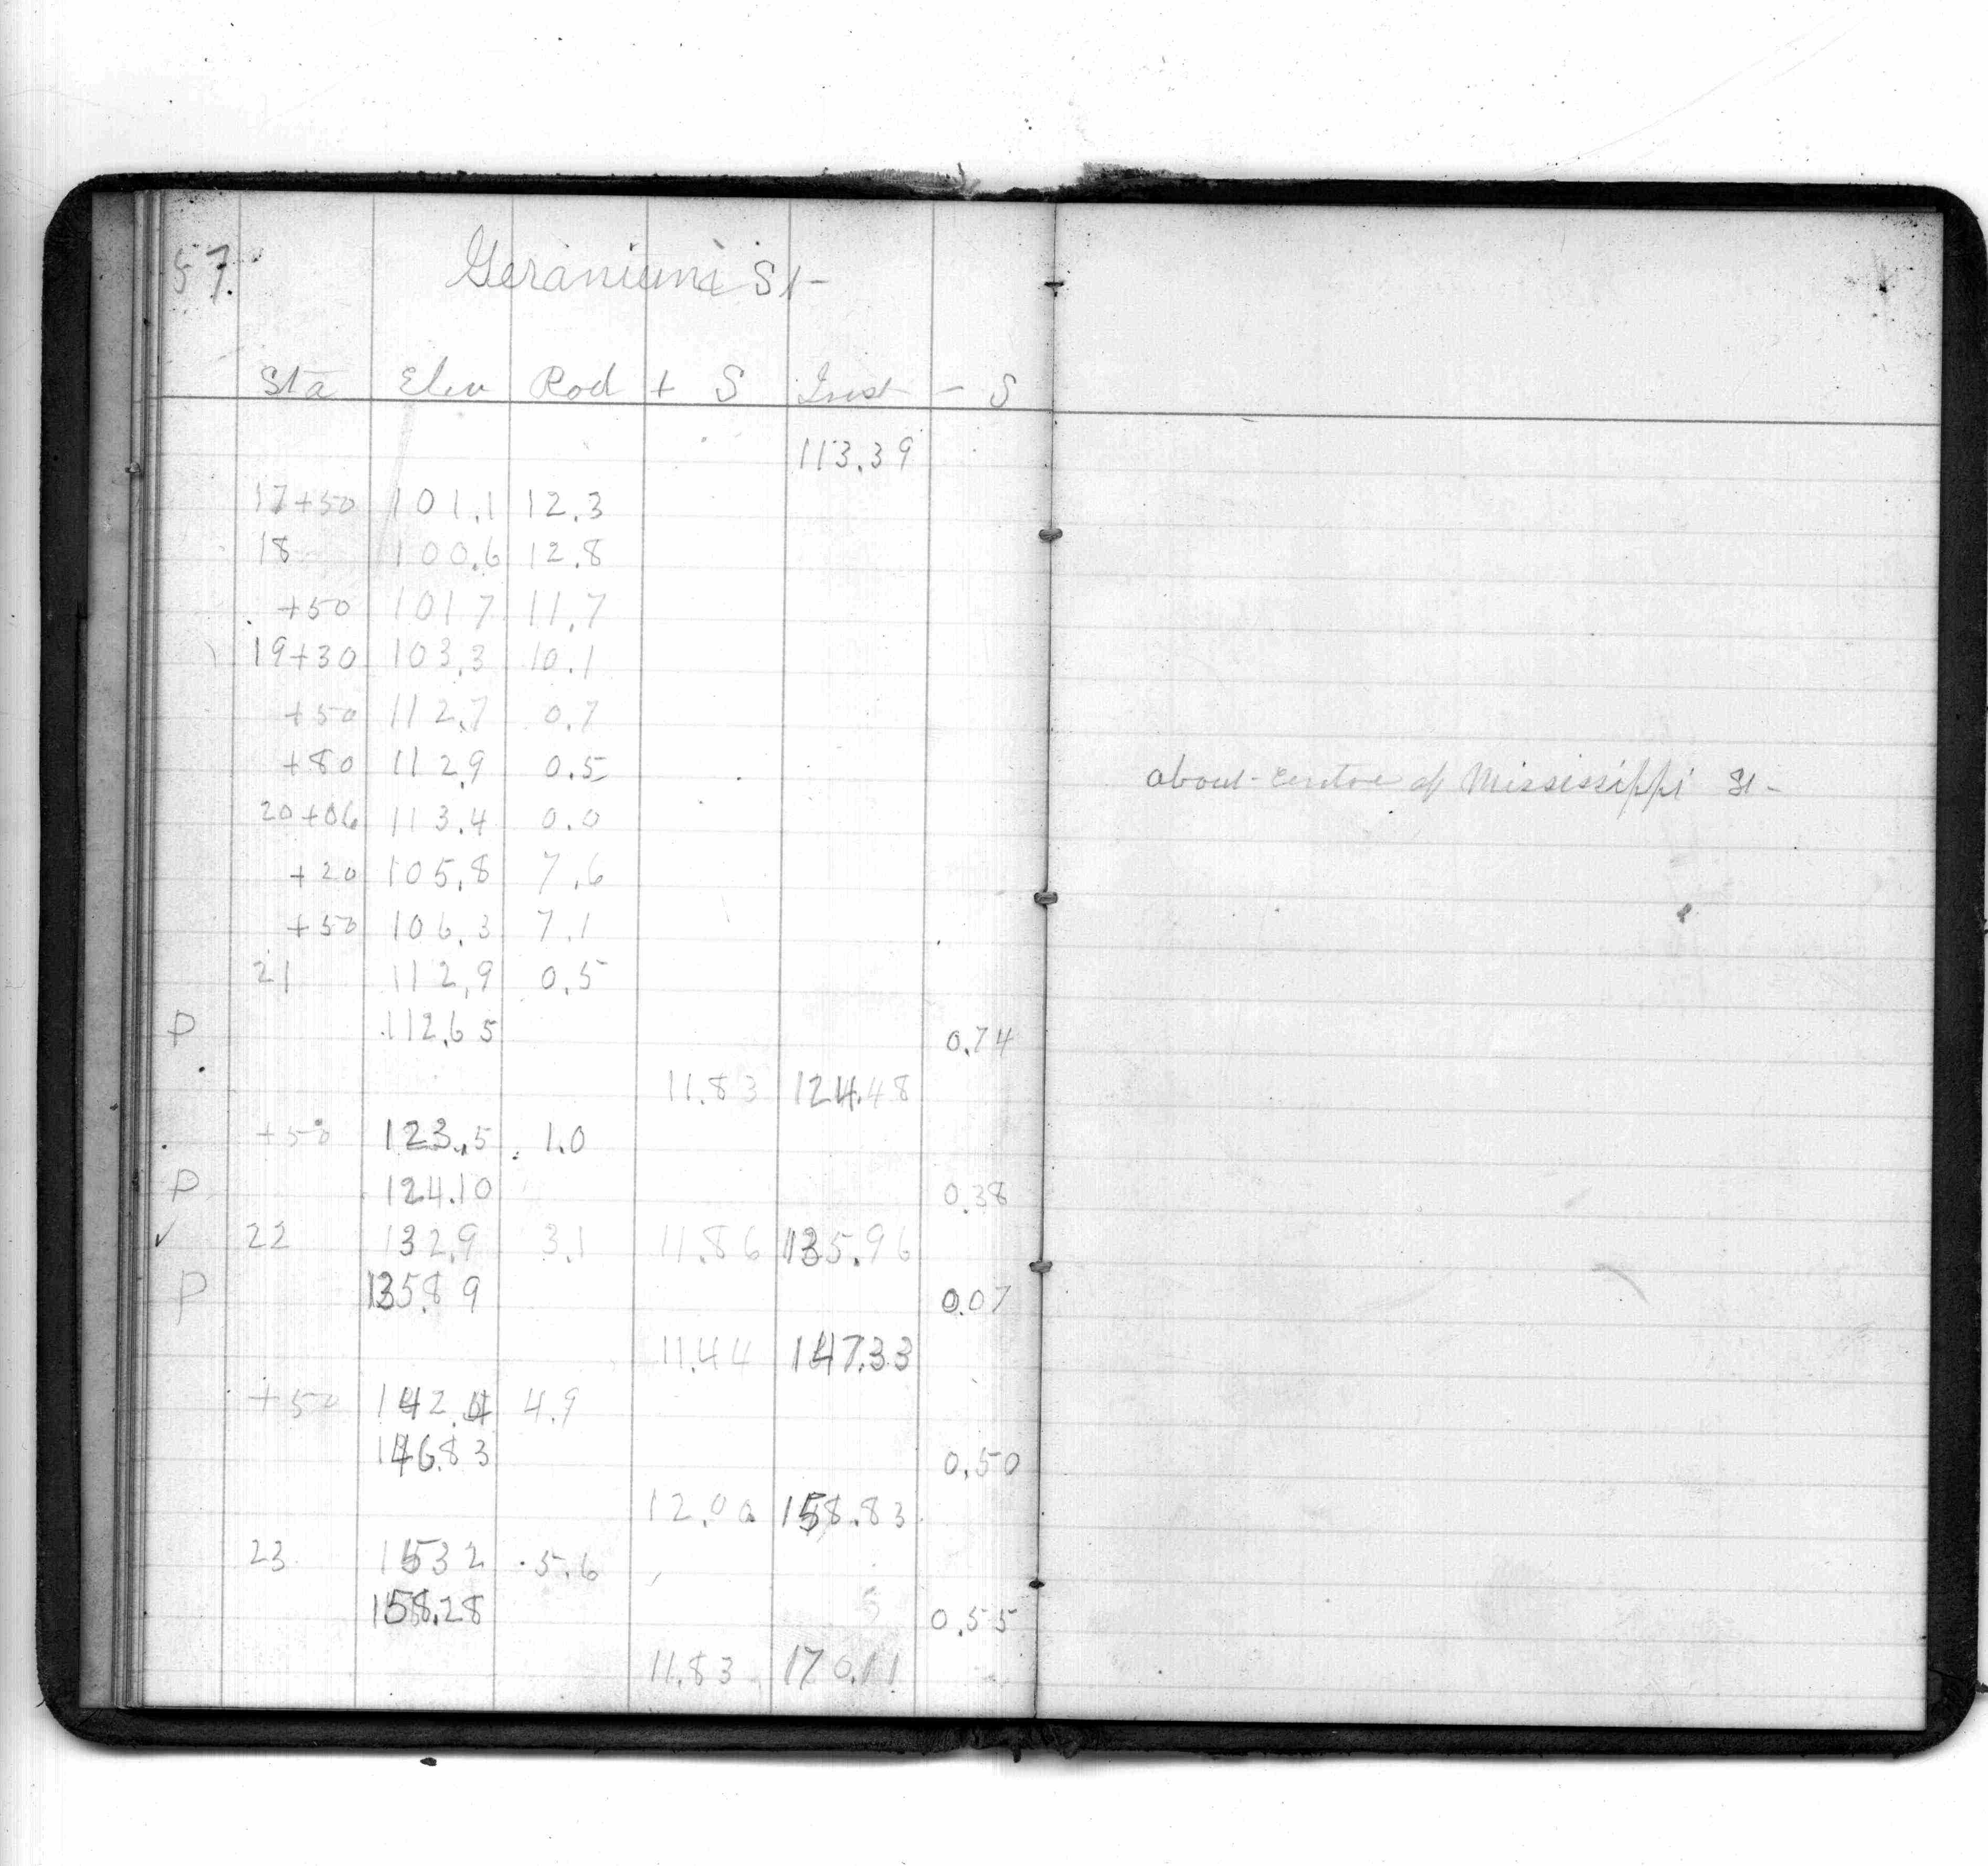 57.
Geranium St-
Sta Elev Rod + S Inst - S
113.39
17+50 101.1 12.3
18 100.6 12.8
+50 101 7 11.7
19+30 103.3 10.1
+50 112.7 0.7
+80 112.9 0.5 about centre of Mississippi St-
20+06 113.4 0.0
+20 105.8 7.6
+50 106.3 7.1
21 112.9 0.5
P 112.65 0.74
11.83 124.48
+50 123.5 1.0
P 124.10 0.38
✓ 22 132.9 3.1 11.86 135.96
P 135.89 0.07
11.44 147.33
+50 142.4 4.9
146.83 0.50
12.00 158.83
23 153 2 5.6
158.28 0.55
11.83 170.11